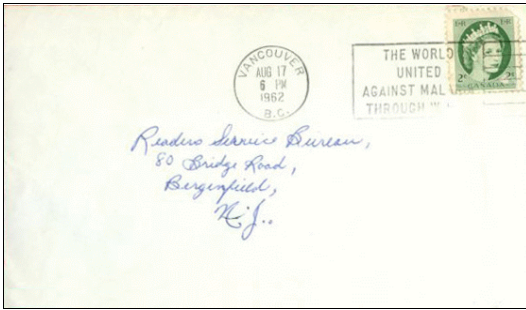 VANCOUVER
AUG 17
6 PM
1962
B.C.
THE WORLD
UNITED
AGAINST MAL
THROUGH W
2¢ 2¢
CANADA
Readers Service Bureau,
80 Bridge Road,
Bergenfield,
N.J..